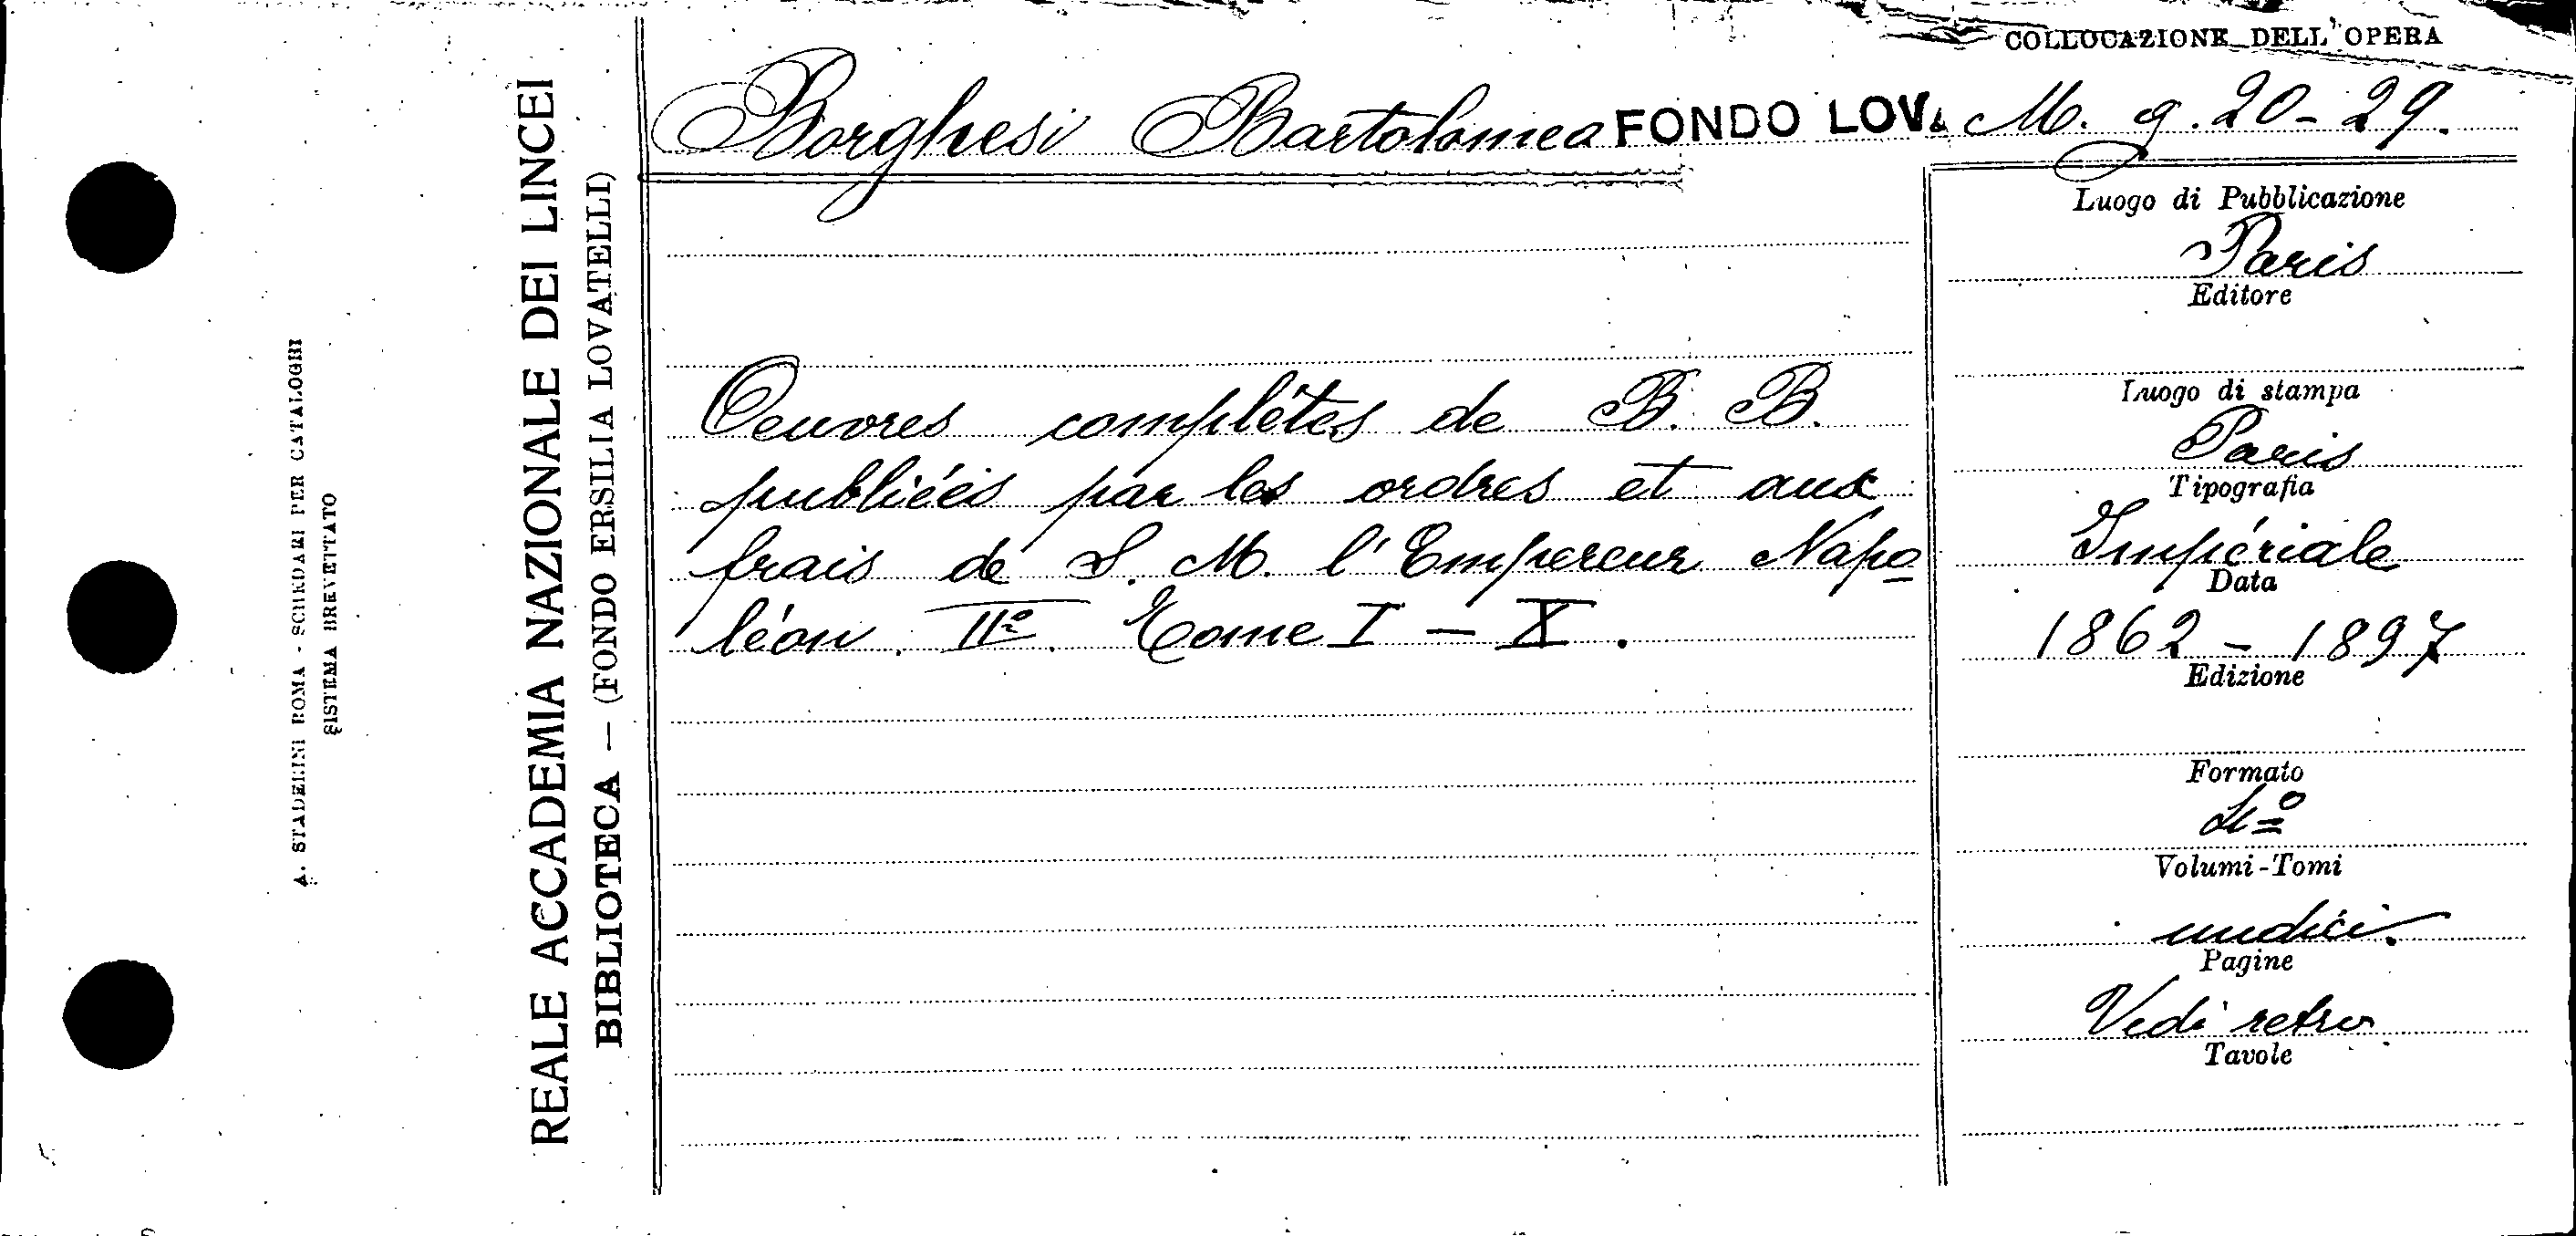 A. STADERINI ROMA - SCHEDARI PER CATALOGHI
SISTEMA BREVETTATO
REALE ACCADEMIA NAZIONALE DEI LINCEI
BIBLIOTECA — (FONDO ERSILIA LOVATELLI)
COLLOCAZIONE DELL'OPERA
Borghesi Bartolomeo FONDO LOV. M. g. 20-29.
Oeuvres complêtes de B. B.
publiéés par les ordres et aux
frais de S. M. l'Empereur Napo
léon IIº. Tome I — X.
Luogo di Pubblicazione
Paris
Editore
Luogo di stampa
Paris
Tipografia
Impériale
Data
1862 - 1897
Edizione
Formato
4º
Volumi-Tomi
undici
Pagine
Vedi retro
Tavole